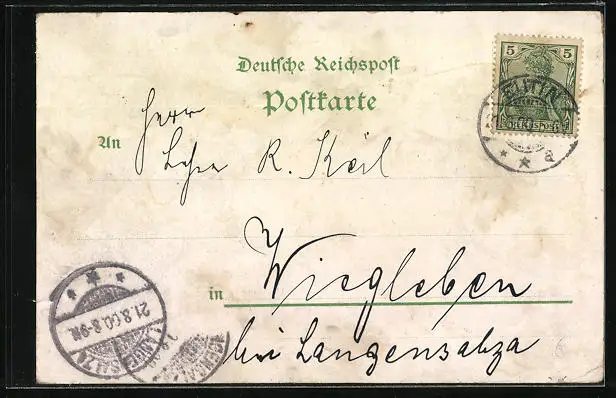 Deutsche Reichspost
Postkarte
5 5
An Herrn
Lehrer R. Keil
in Wiegleben
bei Langensalza
21.8.00.8-9N.